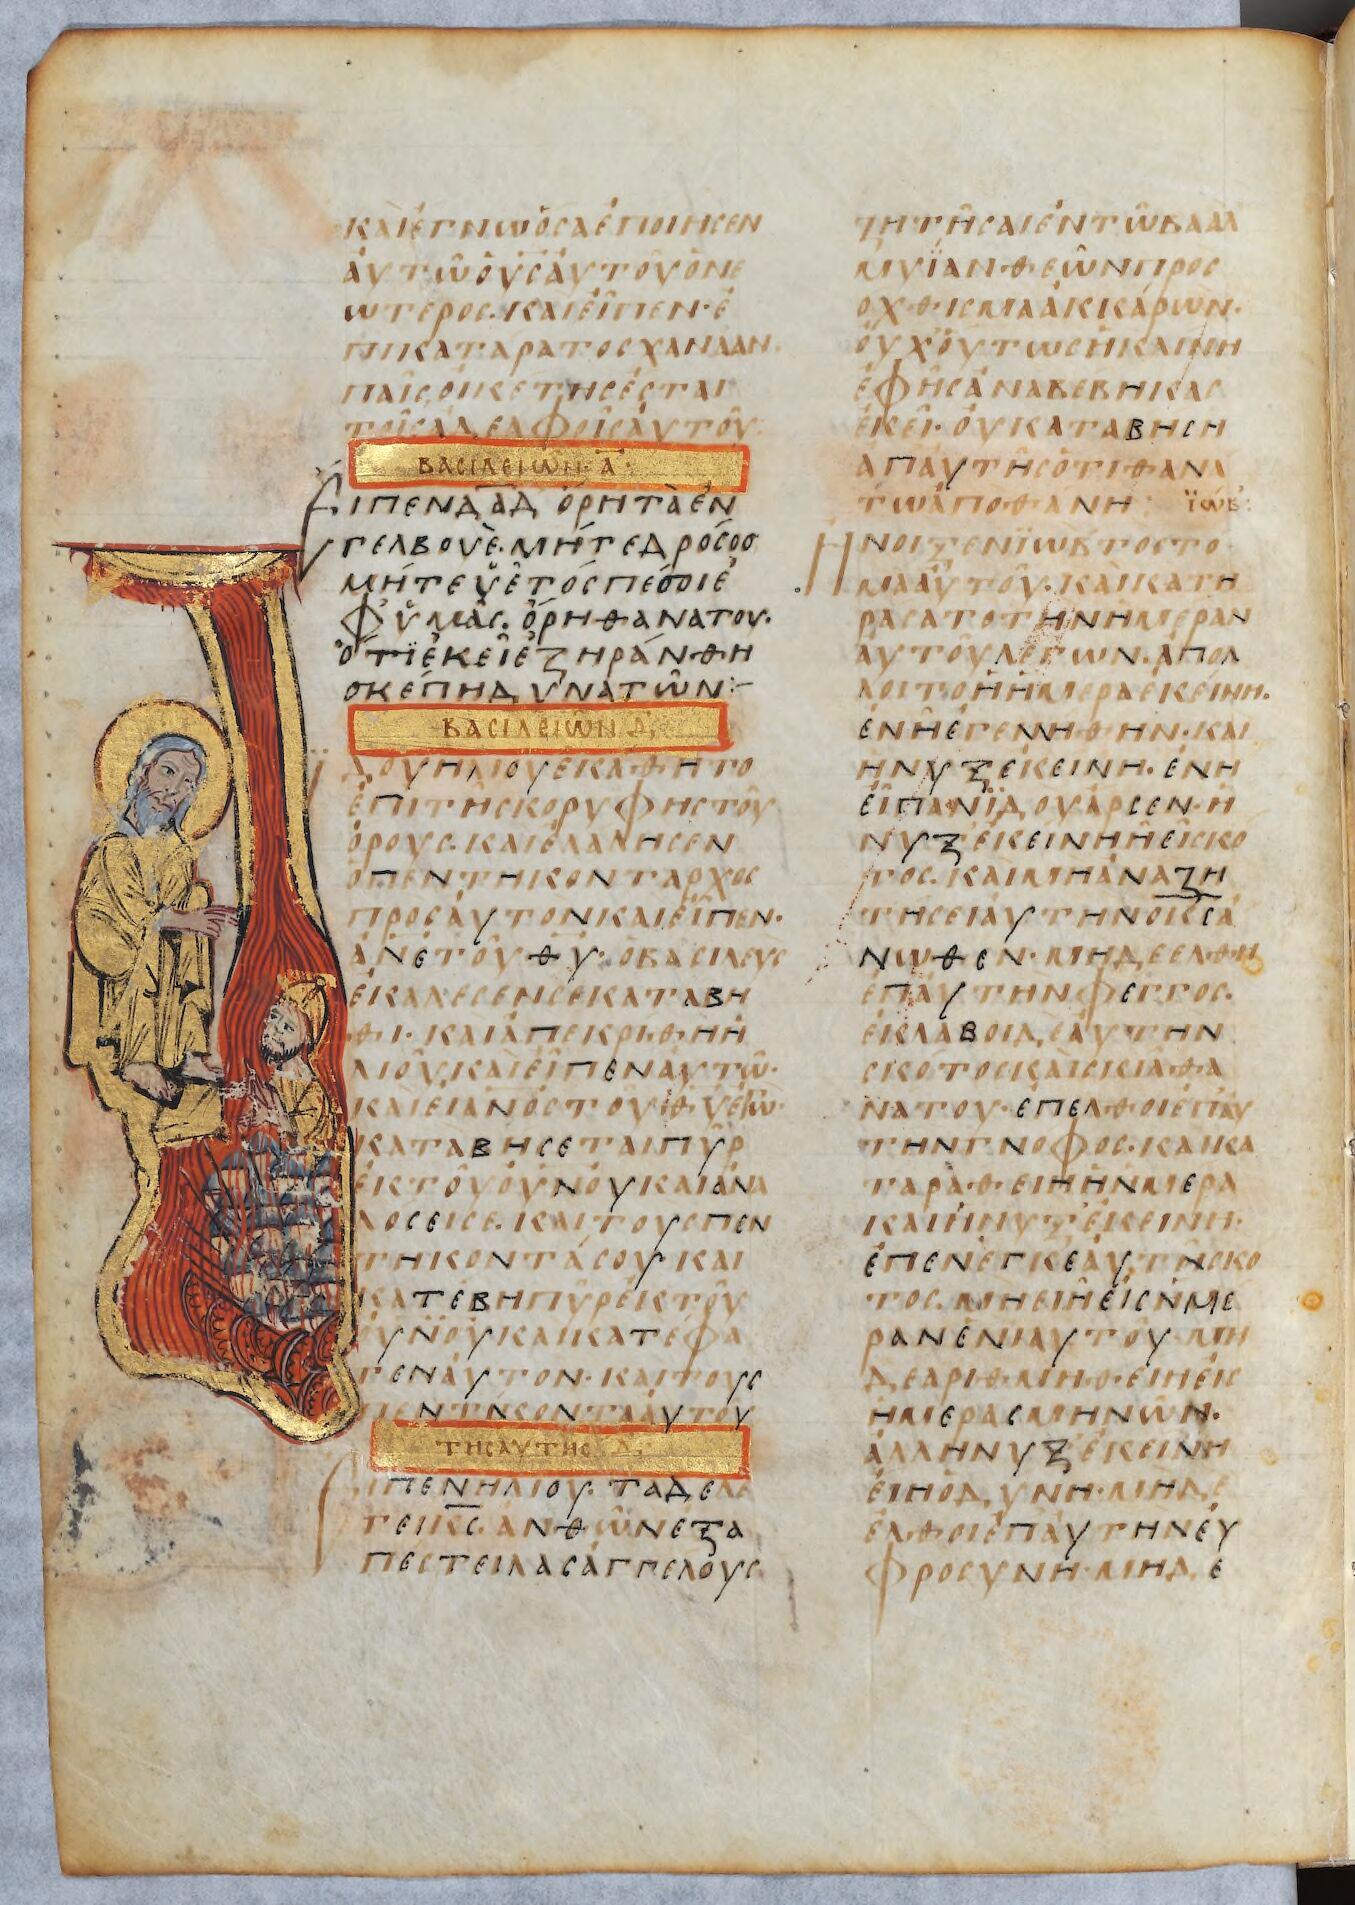 ΚΑῚ ἔΓΝΩ ὅϹΑ ἐΠΟΙΗϹΕΝ
ἀΥΤῶ ὁ ΥἱϹ ἀΥΤΟῦ ὁ ΝΕ
ΩΤΕΡΟϹ· ΚΑΙ ΕἶΠΕΝ· Ἐ
ΠΙΚΑΤΑΡΑΤΟϹ ΧΑΝΑΑΝ·
ΠΑῖϹ ΟἰΚΕΤΗϹ ἔϹΤΑΙ
ΤΟῖϹ ΑΔΕΛΦΟῖϹ ἀΥΤΟῦ·
ΒΑϹΙΛΕΙΩΝ· Α·
ΕΙΠΕΝ ΔΑΔ ὄΡΗ ΤΑ ἐΝ
ΓΕΛΒΟΥΕ· ΜΉΤΕ ΔΡΌϹΟϹ
ΜΉΤΕ ὑΕΤΌϹ ΠΕϹΟΙ Ἐ
Φ ὑΜᾶϹ· ὄΡΗ ΘΑΝΑΤΟΥ·
ὅΤΙ ἐΚΕῖ ἐΞΗΡΆΝΘΗ
ϹΚΈΠΗ ΔΥΝΑΤῶΝ:–
ΒΑϹΙΛΕΙῶΝ Δ·
ΪΔΟΥ ΗΛΙΟΥ ΕΚΑΘΗΤΟ
ἐΠΙ ΤῆϹ ΚΟΡΥΦΗϹ ΤΟῦ
ὄΡΟΥϹ· ΚΑΙ ἐΛΑΛΗϹΕΝ
ὁ ΠΕΝΤΗΚΟΝΤΑΡΧΟϹ
ΠΡΟϹ ἀΥΤΟΝ ΚΑΙ ΕἶΠΕΝ·
ἀΝΕ ΤΟῦ ΘΥ· ὁ ΒΑϹΙΛΕΥϹ
ἐΚΑΛΕϹΕΝ ϹΕ ΚΑΤΑΒΗ
ΘΙ· ΚΑΙ ἀΠΕΚΡΙΘΗ Ἡ
ΛΙΟῦ ΚΑῚ ΕἶΠΕΝ ἀΥΤῶ·
ΚΑῚ ΕΙ ΑΝΟϹ ΤΟΥ ΘΥ ἐΓῶ·
ΚΑΤΑΒΗϹΕΤΑΙ ΠῦΡ
ἐΚ ΤΟῦ ΟΥΝΟΥ ΚΑΙ ἀΝΑ
ΛΟϹΕΙ ϹΕ· ΚΑΙ ΤΟΥϹ ΠΕΝ
ΤΗΚΟΝΤΆ ϹΟΥ· ΚΑΙ
ΚΑΤΕΒΗ ΠῦΡ ἐΚ ΤΟῦ
ΟΥΝΟῦ ΚΑΙ ΚΑΤΕΦΑ
ΓΕΝ ἀΥΤΟΝ· ΚΑΙ ΤΟΥϹ
ΠΕΝΤΉΚΟΝΤΑ ἀΥΤΟΥ
ΤΗϹ ΑΥΤΗϹ Δ·
ΕΙΠΕΝ ΗΛΙΟΥ· ΤΑΔΕ ΛΕ
ΓΕΙ ΚϹ· ΑΝΘ ὧΝ ΕΞΑ
ΠΕϹΤΕΙΛΑϹ ἀΓΓΕΛΟΥϹ
ΖΗΤῆϹΑΙ ἐΝ ΤῶΒΑΑΛ
ΜΥΪΑΝ ΘΕῶΝ ΠΡΟϹ
ΟΧΘΙϹΜΑ ἈΚΚΆΡΩΝ·
ΟὐΧ ΟὕΤΩϹ· Ἡ ΚΛΙΝΗ
ἐΦ ῆϹ ἀΝΑΒΕΒΗΚΑϹ
ἐΚΕῖ· ΟΥ ΚΑΤΑΒΗϹΗ
ΑΠ ΑΥΤῆϹ ὅΤΙ ΘΑΝΑ
ΤΩ ἀΠΟΘΑΝΗ· ΪῶΒ:
ΗΝΟΙΞΕΝ ΪΩΒ ΤΟ ϹΤΟ
ΜΑ ἀΥΤΟῦ· ΚΑῚ ΚΑΤΗ
ΡΑϹΑΤΟ ΤΗΝ ΗΜΕΡΑΝ
ΑΥΤΟῦ ΛΕΓΩΝ· ἀΠΟΛ
ΛΟΙΤΟ Ἡ ἩΜΕΡΑ ΕΚΕΙΝΗ·
ἐΝ Ἧ ἐΓΕΝΗΘΗΝ· ΚΑΙ
Ἡ ΝΥΞ ἐΚΕΙΝΗ· ἐΝ Η
ΕἶΠΑΝ ΪΔΟΥ ἄΡϹΕΝ· Ἡ
ΝΥΞ ἐΚΕΙΝΗ Ηἴ ϹΚΟ
ΤΟϹ· ΚΑῚ ΜΗ ἀΝΑΖΗ
ΤΗϹΕΙ ΑΥΤΗΝ Ο ΚϹ ἄ
ΝΩΘΕΝ· ΜΗΔΕ ΕΛΘΗ
ΕΠ ΑΥΤΗΝ ΦΕΓΓΟϹ·
ἐΚΛΑΒΟΙ ΔΕ ἀΥΤΗΝ
ϹΚΌΤΟϹ ΚΑῚ ϹΚΙΑ ΘΑ
ΝΑΤΟΥ· ἐΠΕΛΘΟΙ ἐΠ ΑΥ
ΤΗΝ ΓΝΟΦΟϹ· ΚΑΙ ΚΑ
ΤΑΡΑΘΕΙΗ Ἡ ἩΜΕΡΑ
ΚΑΙ Ἡ ΝΥΞ ἐΚΕΙΝΗ·
ἐΠΕΝΈΓΚΕ ΑΥΤῆ ϹΚΟ
ΤΟϹ· ΜΗ ΕΙΗ ΕἰϹ ἩΜΕ
ΡΑΝ ἐΝΙΑΥΤΟῦ· ΜΗ
ΔΕ ΑΡΙΘΜΗΘΕΙΗ ΕΙϹ
ΗΜΕΡΑϹ ΜΗΝῶΝ·
ἀΛΛ Η ΝΥΞ ἐΚΕΙΝΗ
ΕἴΗ ὈΔΥΝΗ· ΜΗΔΕ
ἐΛΘΟΙ ἐΠ ἀΥΤΗΝ ΕΥ
ΦΡΟϹΥΝΗ· ΜΗΔΕ